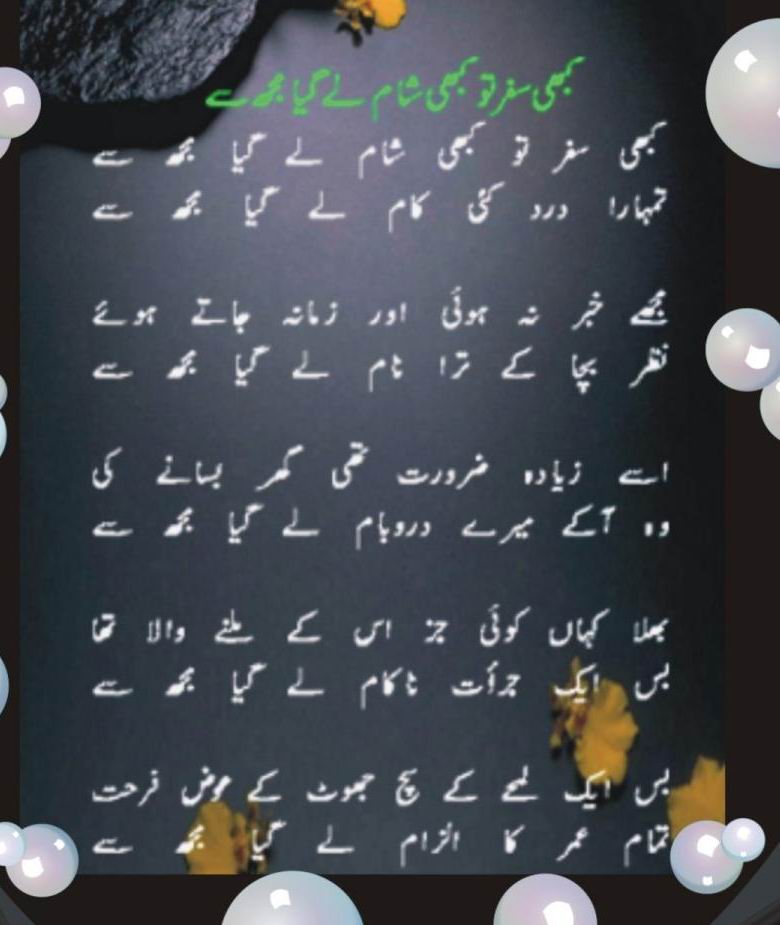 کبھی سفر تو کبھی شام لے گیا مجھ سے
کبھی سفر تو کبھی شام لے گیا مجھ سے
تمہارا درد کئی کام لے گیا مجھ سے
مجھے خبر نہ ہوئی اور زمانہ جاتے ہوئے
نظر بچا کے ترا نام لے گیا مجھ سے
اسے زیادہ ضرورت تھی گھر بسانے کی
وہ آکے میرے دروبام لے گیا مجھ سے
بھلا کہاں کوئی جز اس کے ملنے والا تھا
بس ایک جرأت ناکام لے گیا مجھ سے
بس ایک لمحے کے سچ جھوٹ کے عوض فرحت
تمام عمر کا الزام لے گیا مجھ سے